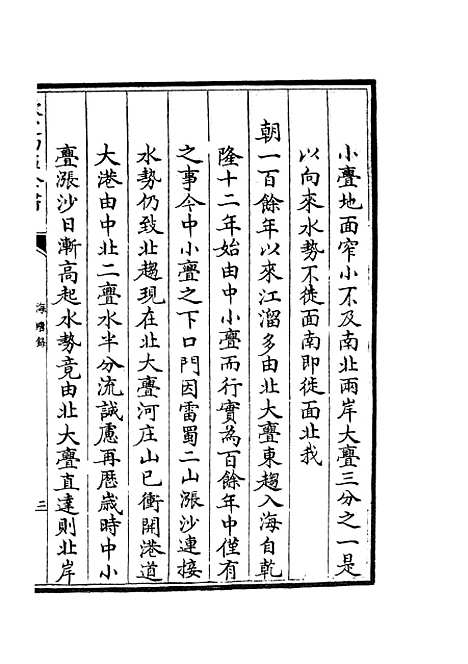 小亹地面窄小不及南北兩岸大亹三分之一是
以向來水勢不徙面南即徙面北我
朝一百餘年以來江溜多由北大亹東趨入海自乾
隆十二年始由中小亹而行實為百餘年中僅有
之事今中小亹之下口門因雷蜀二山漲沙連接
水勢仍致北趨現在北大亹河庄山已衝開港道
大港由中北二亹水半分流誠慮再歷歲時中小
亹漲沙日漸高起水勢竟由北大亹直達則北岸
海塘錄
三